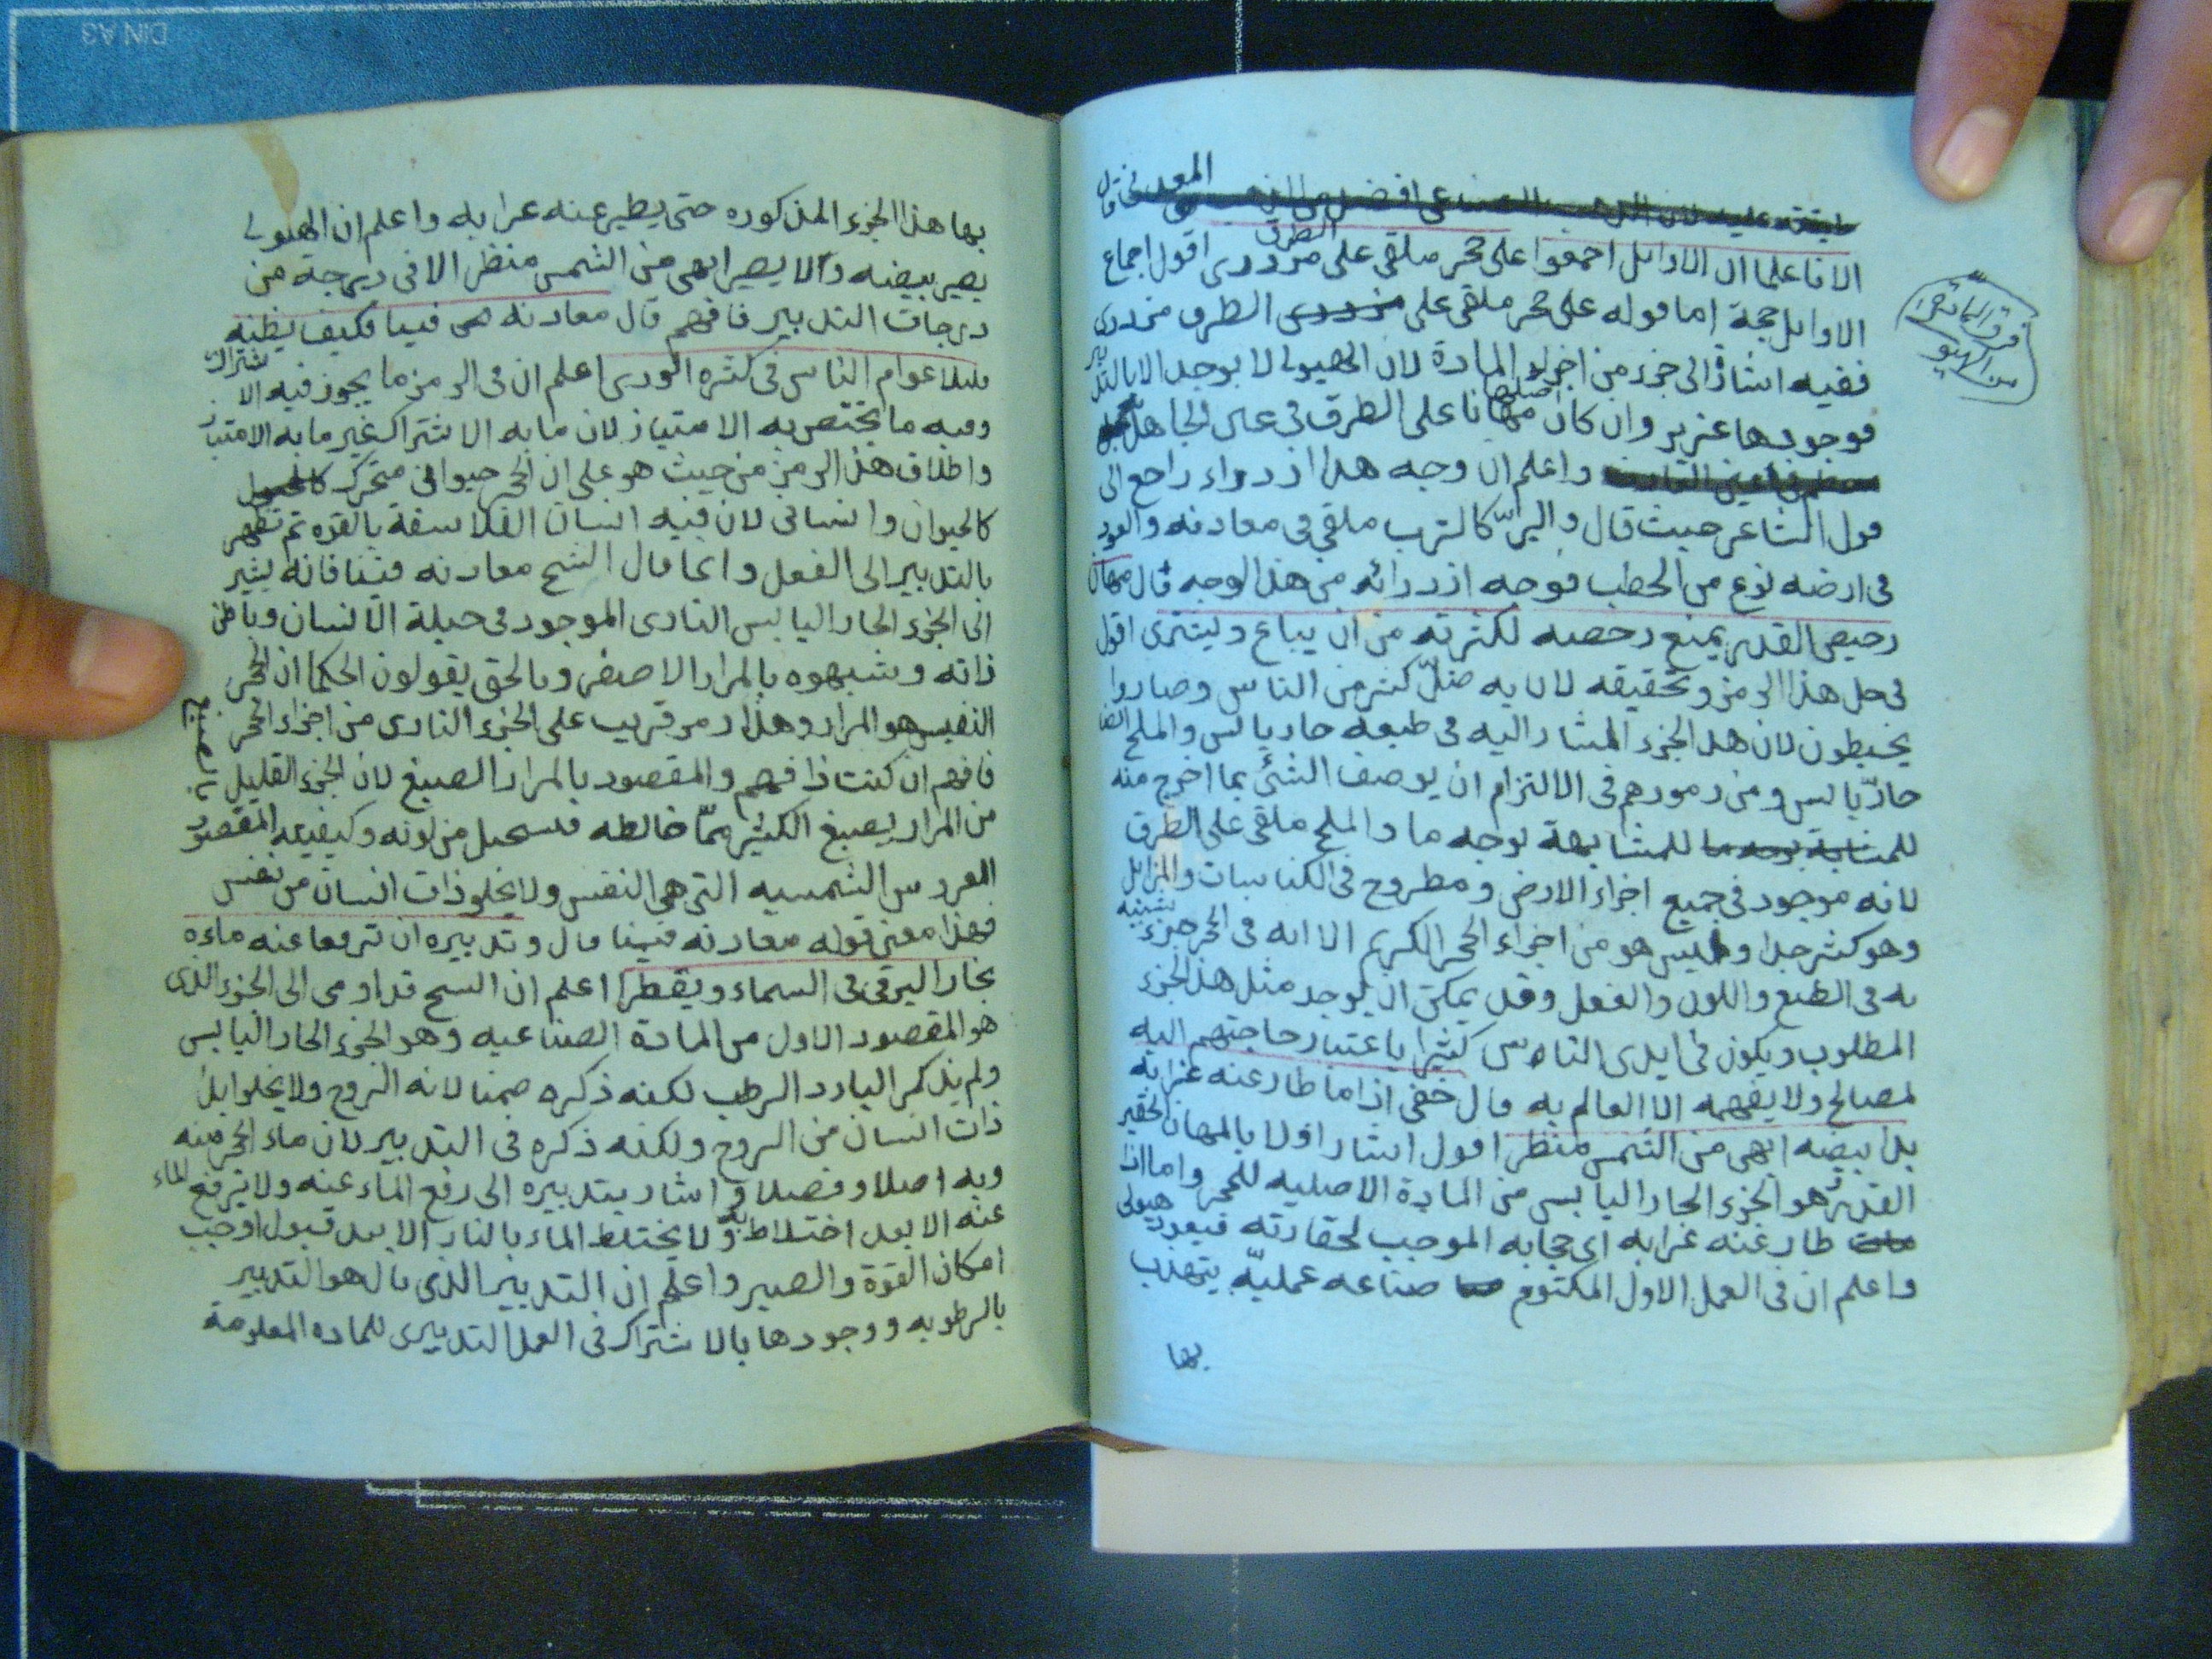 المعدني قال
الا فاعلما ان الاوايل اجمعوا على حجر ملقى على الطرق مزدرى اقول اجماع
الاوايل حجة اما قوله على حجر ملقى على الطرق مزدرى
ففيه اشارة الى جزء من اجزاء المادة لان الهيولى لا يوجد الا بالتدبير
فوجودها عزيز وان كان اصلها مهانا على الطرق في عين الجاهل
واعلم ان وجه هذا ازدراء راجع الى
قول الشاعر حيث قال والتبر كالترب ملقى في معادنه والعود
في ارضه نوع من الحطب فوجه ازدرائه من هذا الوجه قال مهان
رخيص القدر يمنع رخصه لكثرته من ان يباع ويشترى اقول
في حل هذا الرمز وتحقيقه لان به ضلّ كثير من الناس وصاروا
يخبطون لان هذا الجزء المشار اليه في طبعه حار يابس والملح ايضا
حارّ يابس ومن رموزهم في الالتزام ان يوصف الشئ بما اخرج منه
للمشابهة بوجه ما والملح ملقى على الطرق
لانه موجود في جميع اجزاء الارض ومطروح في الكناسات والمزابل
وهو كثير جدا وليس هو من اجزاء الحجر الكريم الا انه في الحجر جزء شبيه
به في الطبع واللون والفعل وقد يمكن ان يوجد مثل هذا الجزء
المطلوب ويكون في ايدي الناس كثيرا باعتبار حاجتهم اليه
لمصالح ولا يفهمه الا العالم به قال خفى اذا ما طار عنه غرابه
بدا بيضه ابهى من الشمس منظرا اقول اشار اولا بالمهان الحقير
القدر هو الجزء الحار اليابس من المادة الاصلية للحجر واما اذا
طار عنه غرابه اى حجابه الموجب لحقارته فيعود هيولى
واعلم ان في العمل الاول المكتوم صناعه عمليّه يتهذب
بها
فرق المادة
من الهيولى
بها هذا الجزء المذكوره حتى يطير عنه غرابه واعلم ان الهيولى
يصير بيضه والا يصير ابهى من الشمس منظرا الا في درجة من
درجات التدبير فافهم قال معادنه هى فينا فكيف يظنه
عوام الناس في كثره الورى اعلم ان في الرمز ما يجوز فيه الاشتراك
وفيه ما يختص به الامتياز لان ما به الاشتراك غير ما به الامتياز
واطلاق هذا الرمز من حيث هو على ان الحجر حيواني متحرك
كالحيوان وانساني لان فيه انسان الفلاسفة بالقوه ثم تظهر
بالتدبير الى الفعل وانما قال الشيخ معادنه فينا فانه يشير
الى الجزء الحار اليابس النارى الموجود في جبلة الانسان وباطن
ذاته وشبهوه بالمرار الاصفر وبالحق يقولون الحكما ان الحجر
النفيس هو المرار وهذا رمز قريب على الجزء النارى من اجزاء الحجر
فافهم ان كنت ذا فهم والمقصود بالمرار الصبغ لان الجزء القليل
من المرار يصبغ الكثير ممّا خالطه فيستحيل من لونه وكيفيته المقصود
الشمسيه التى هى النفس ولا يخلو ذات انسان من نفس
فهذا معنى قوله معادنه فينا قال وتدبيره ان ترفعا عنه ماءه
بخارا ليرقى في السماء ويقطرا اعلم ان الشيخ قد اومى الى الجزء الذى
هو المقصود الاول من المادة الصناعيه وهو الجزء الحار اليابس
ولم يذكر البارد الرطب لكنه ذكره ضمنا لانه الروح ولا يخلو ابدا
ذات انسان من الروح ولكنه ذكره في التدبير لان ماء الحجر منه
وبه اصلا وفصلا واشار بتدبيره الى رفع الماء عنه ولا يرفع الماء
عنه الا بعد اختلاط به ولا يختلط الماء بالنار الا بعد قبول اوجب
امكان القوة والصبر واعلم ان التدبير الذى قال هو التدبير
بالرطوبه ووجودها بالاشتراك في العمل التدبيرى للماده المعلومة